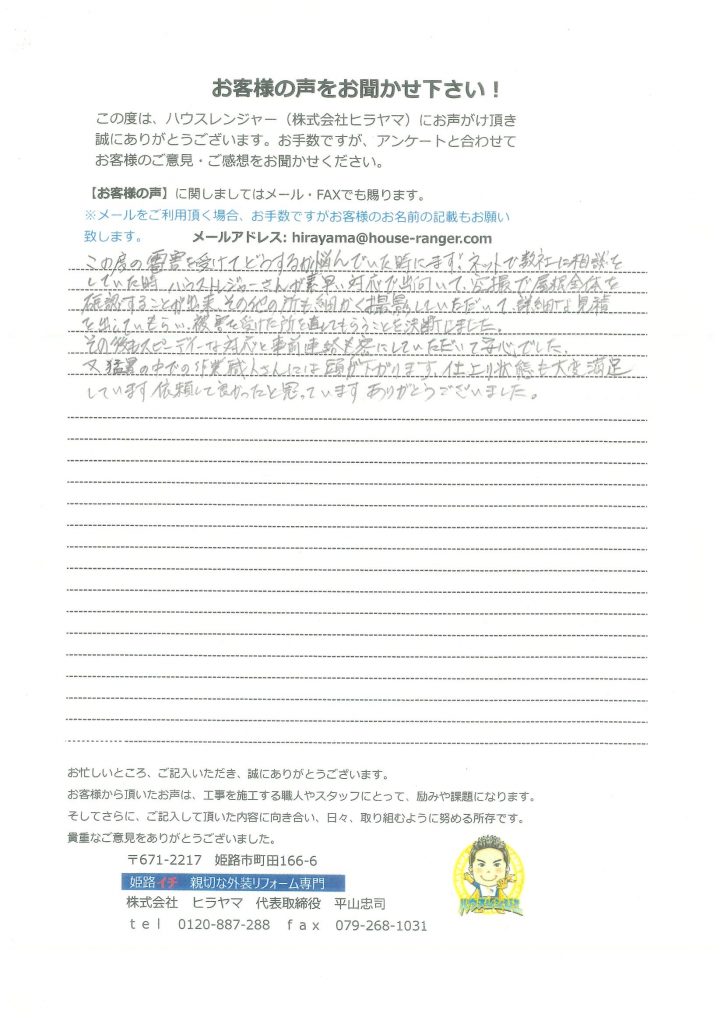 お客様の声をお聞かせ下さい！
この度は、ハウスレンジャー（株式会社ヒラヤマ）にお声がけ頂き
誠にありがとうございます。お手数ですが、アンケートと合わせて
お客様のご意見・ご感想をお聞かせください。
【お客様の声】に関しましてはメール・FAXでも賜ります。
※メールをご利用頂く場合、お手数ですがお客様のお名前の記載もお願い
致します。 メールアドレス: hirayama@house-ranger.com
この度の雹害を受けてどうするか悩んでいた時にまずネットで数社に相談を
していた時、ハウスレンジャーさんが素早い対応で出向いて、空撮で屋根全体を
確認することが出来、その他の所も細かく撮影していただいて、詳細な見積
を出していもらい、被害を受けた所を直してもらうことを決断しました。
その後もスピーディーな対応と事前連絡も密にしていただいて安心でした。
又、猛暑の中での作業職人さんには頭が下がります。仕上り状態も大変満足
しています 依頼して良かったと思っています ありがとうございました。
お忙しいところ、ご記入いただき、誠にありがとうございます。
お客様から頂いたお声は、工事を施工する職人やスタッフにとって、励みや課題になります。
そしてさらに、ご記入して頂いた内容に向き合い、日々、取り組むように努める所存です。
貴重なご意見をありがとうございました。
〒671-2217 姫路市町田166-6
姫路イチ 親切な外装リフォーム専門
株式会社 ヒラヤマ 代表取締役 平山忠司
ｔｅｌ 0120-887-288 ｆａｘ 079-268-1031
ハウスレンジャー